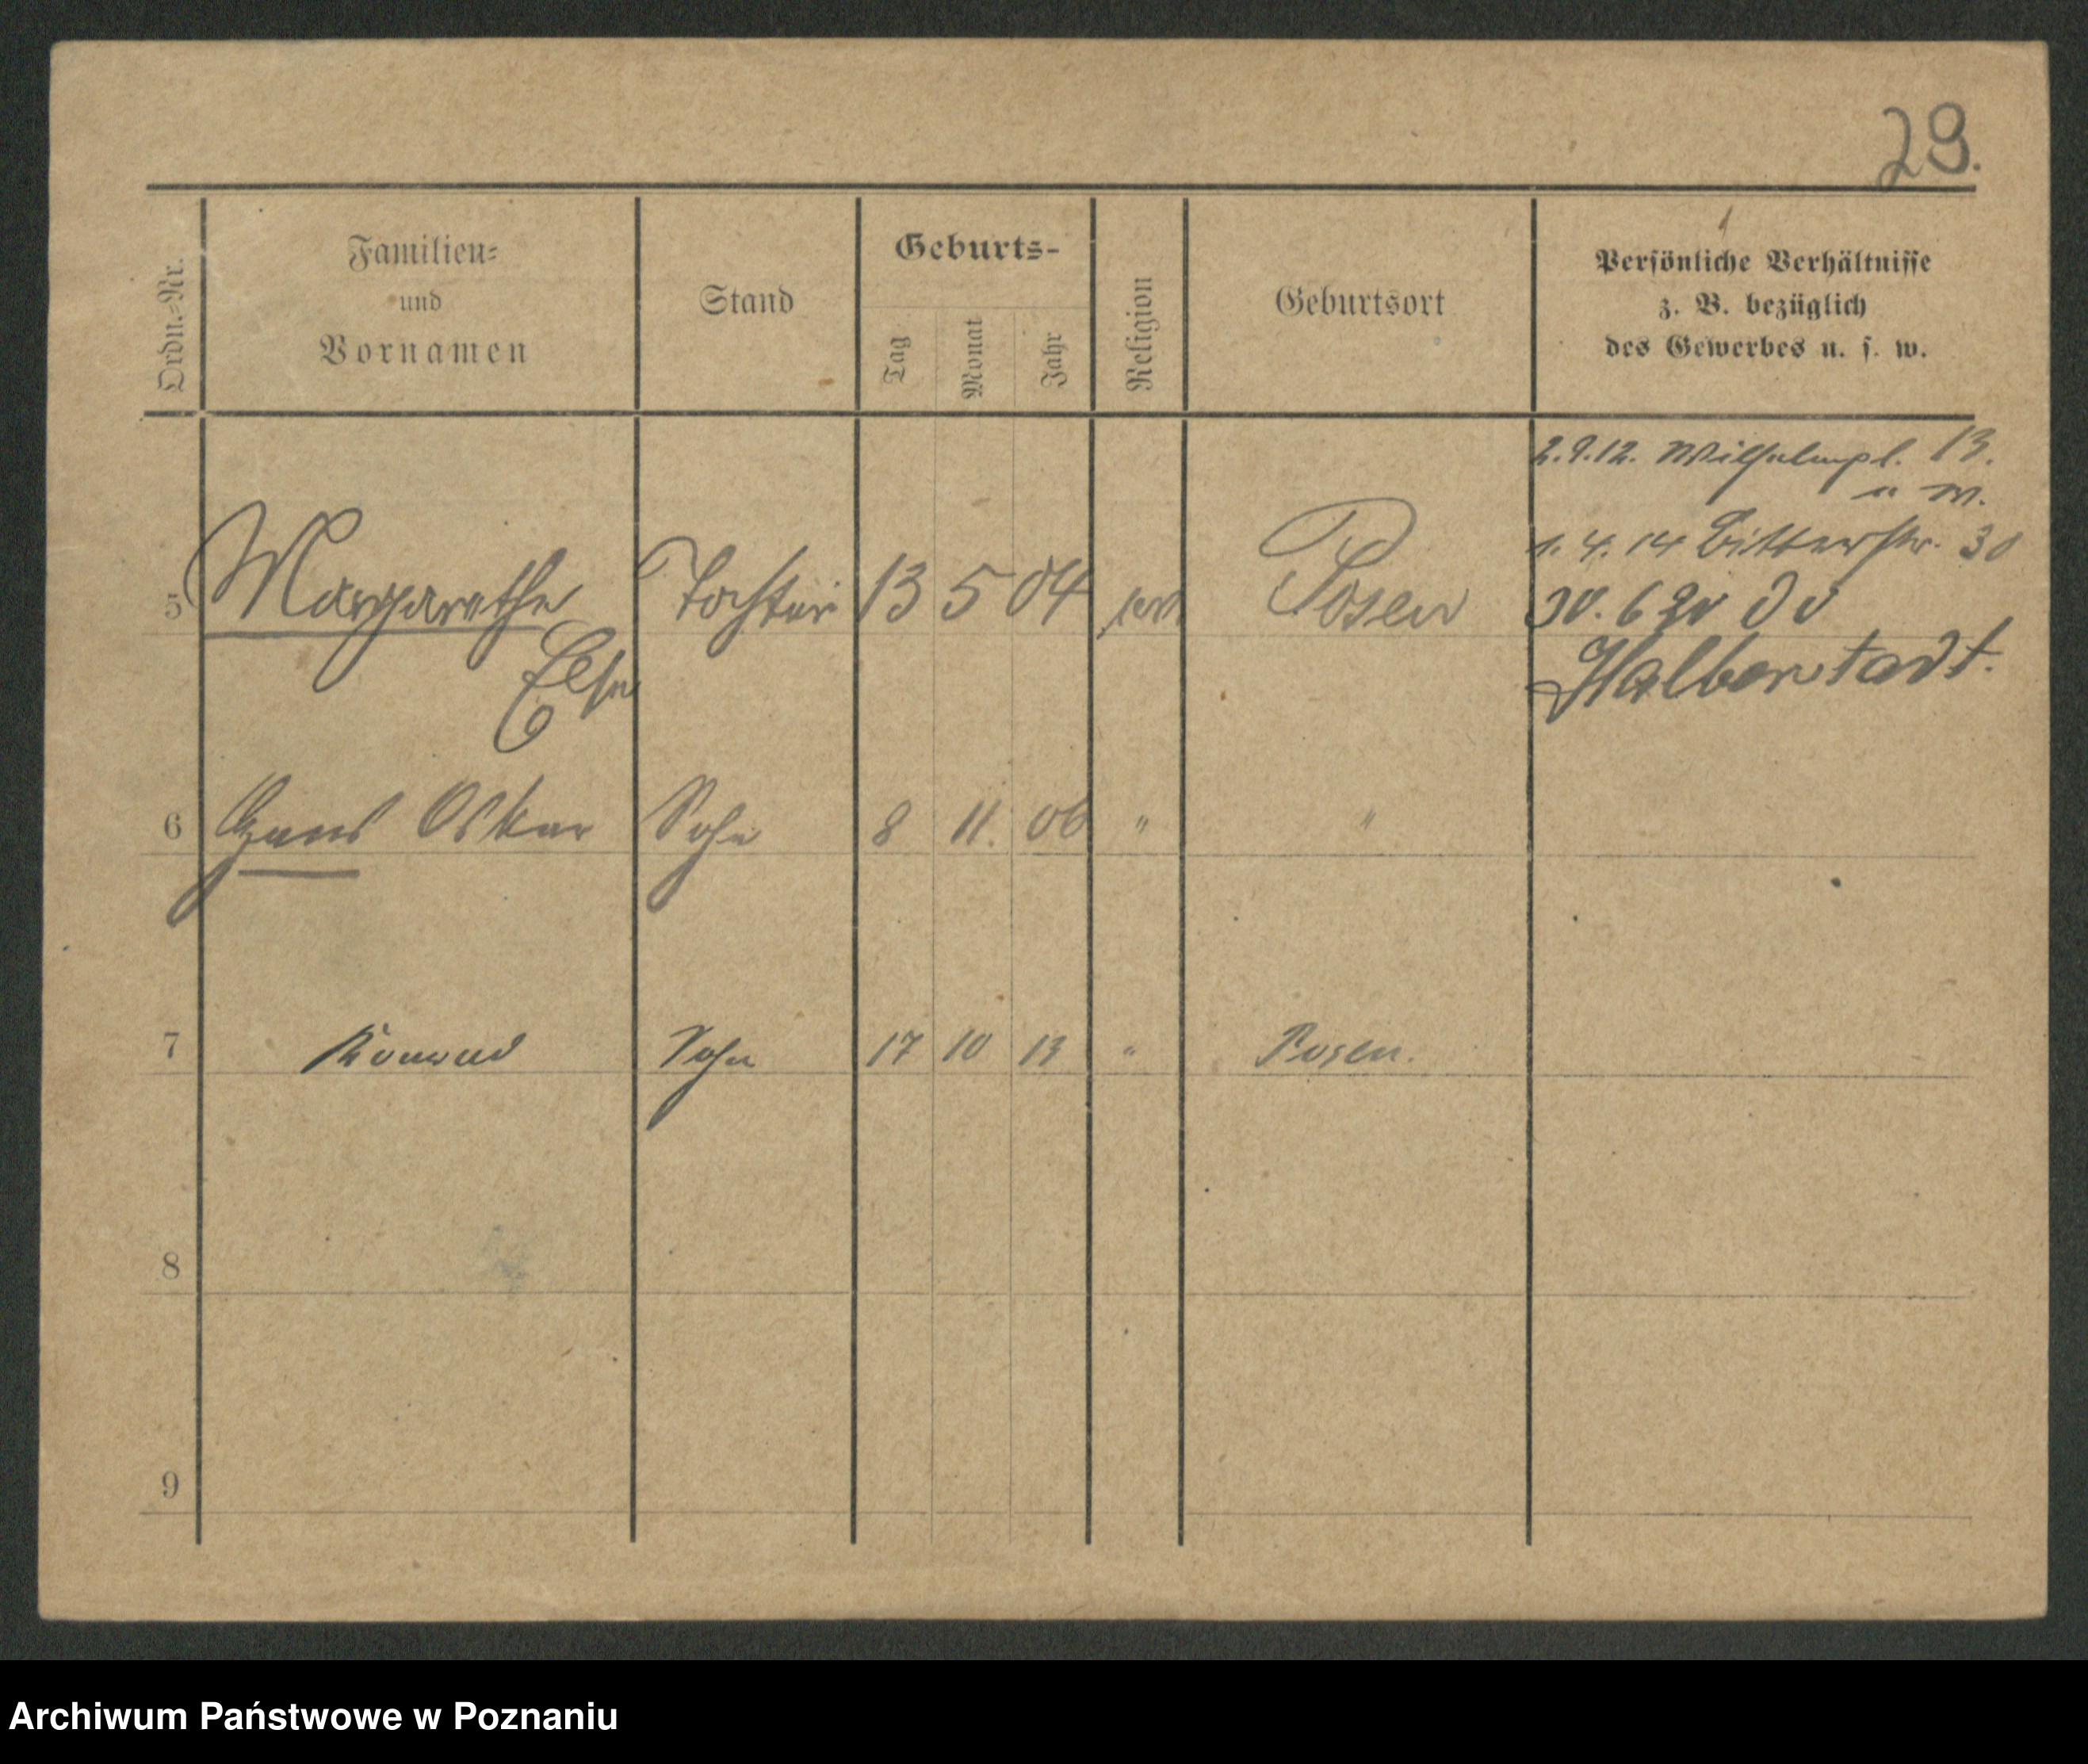 29.
Ordn.-Nr.
Familien-
und
Vornamen
Stand
Geburts-
Tag
Monat
Jahr
Religion
Geburtsort
Persönliche Verhältnisse
z. B. bezüglich
des Gewerbes u. s. w.
2.9.12. Wilhelmpl. 13.
1. 4. 14 Ritterstr. 30
5 Margarethe Tochter 13 5 04 Posen 30. 6 20
Else Halberstadt.
6 Hans Oskar Sohn 8 11. 06 " "
7 Konrad Sohn 17 10 13 " Posen.
8
9
Archiwum Państwowe w Poznaniu